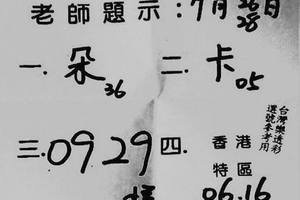 老師題示:7月26日
28
一.朵36 二.卡05
三.0929 四.香港特區
06.16
台灣樂透彩
選號參考用